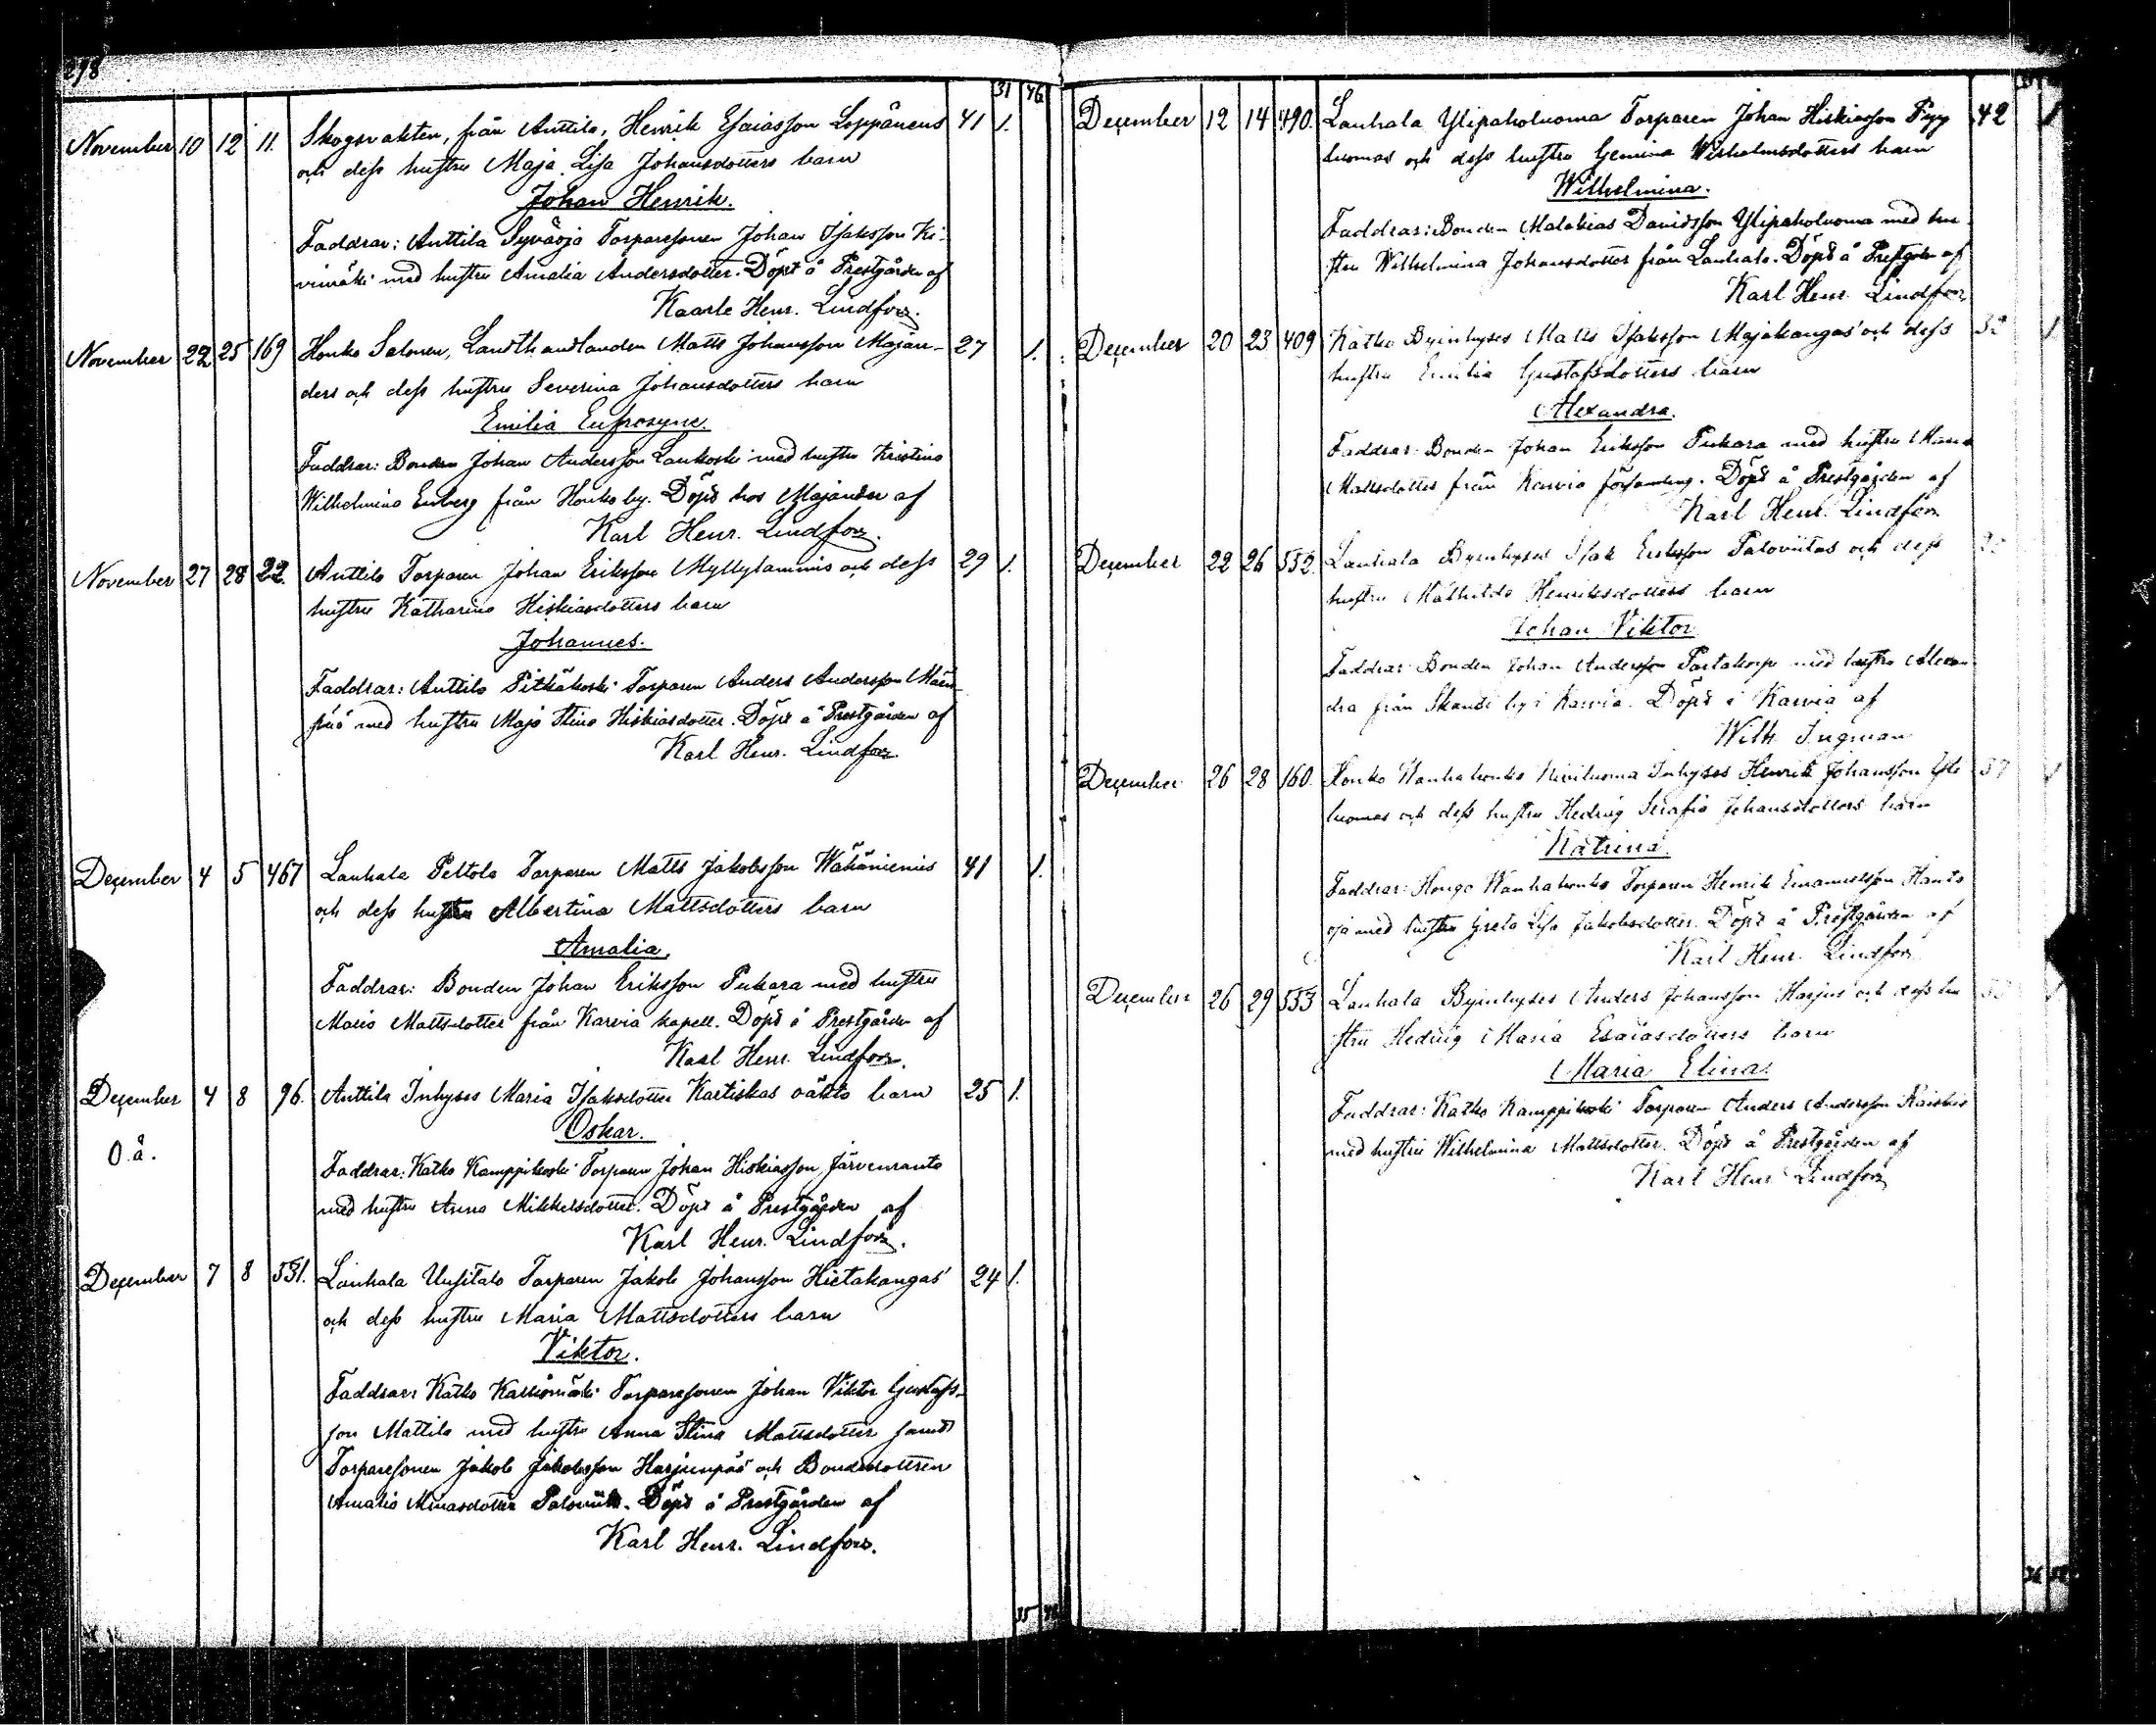 298
31 46
November 10 12 11. Skogsvakten, från Anttila, Henrik Esaiasson Loppänens 41 1.
och dess hustru Maja Lisa Johansdotters barn
Johan Henrik.
Faddrar: Anttila Syväoja Torparesonen Johan Isaksson Ki-
vimäki med hustru Amalia Andersdotter. Döpt å Prestgården af
Kaarle Henr. Lindfors.
November 22 25 169 Honko Salonen, Landthandlanden Matts Johansson Majan- 27 1.
ders och dess hustru Severina Johansdotters barn
Emilia Eufrosyne.
Faddrar: Bonden Johan Andersson Lankoski med hustru Kristina
Wilhelmina Enberg från Honko by. Döpt hos Majander af
Karl Henr. Lindfors.
November 27 28 22. Anttila Torparen Johan Eriksson Myllylammis och dess 29 1.
hustru Katharina Hiskiasdotters barn
Johannes.
Faddrar: Anttila Pitkäkoski Torparen Anders Andersson
med hustru Maja Stina Hiskiasdotter. Döpt å Prestgården af
Karl Henr. Lindfors.
December 4 5 467 Lauhala Peltola Torparen Matts Jakobsson Wähäniemis 41 1.
och dess hustru Albertina Mattsdotters barn
Amalia.
Faddrar: Bonden Johan Eriksson Pukara med hustru
Maria Mattsdotter från Karvia kapell. Döpt å Prestgården af
Karl Henr. Lindfors.
December 4 8 96. Anttila Inhyses Maria Isaksdotter Kartiskas oäkta barn 25 1.
O.ä.
Oskar.
Faddrar: Kätkö Kamppikoski Torparen Johan Hiskiasson Järvenranta
med hustru Anna Mikkelsdotter. Döpt å Prestgården af
Karl Henr. Lindfors.
December 7 8 531. Lauhala Uusitalo Torparen Jakob Johansson Hietakangas 24 1.
och dess hustru Maria Mattsdotters barn
Viktor.
Faddrar: Kätkö Kalliomäki Torparesonen Johan Viktor Gustafs-
son Mattila med hustru Anna Stina Mattsdotter samt
Torparesonen Jakob Jakobsson Harjunpää och Bondedottren
Amalia Palovuita. Döpt å Prestgården af
Karl Henr. Lindfors.
35
December 12 14 490. Lauhala Ylipaholuoma Torparen Johan Hiskiasson Pyy 42 1
luomas och dess hustru Gemina Wilhelmsdotters barn
Wilhelmina.
Faddrar: Bonden Malakias Davidsson Ylipaholuoma med hu-
stru Wilhelmina Johansdotter från Lauhala. Döpt å Prestgården af
Karl Henr. Lindfors
December 20 23 409 Kätkö Byinhyses Matts Isaksson Majakangas och dess 1
hustru Emilia Gustafsdotters barn
Alexandra.
Faddrar: Bonden Johan Eriksson Pukara med hustru Maria
Mattsdotter från Karvia församling. Döpt å Prestgården af
Karl Henr. Lindfors
December 22 26 552. Lauhala Byinhyses Isak Eriksson Palovuitas och dess
hustru Mathilda Henriksdotters barn
Johan Viktor
Faddrar: Bonden Johan Andersson med hustru Alexan
dra från by i Karvia. Döpt i Karvia af
Wilh Ingman
December 26 28 160. Honko Wanhahonko Niviluoma Inhyses Henrik Johansson Yli 1
luomas och dess hustru Hedvig Serafia Johansdotters barn
Katrina.
Faddrar: Hongo Wanhahonko Torparen Henrik Emanuelsson Hanto
oja med hustru Greta Lisa Jakobsdotter. Döpt å Prestgården af
Karl Henr. Lindfors
December 26 29 553 Lauhala Byinhyses Anders Johansson Harjus och dess hu
stru Hedvig Maria Esaiasdotters barn
Maria Elina.
Faddrar: Kätkö Kamppikoski Torparen Anders Andersson
med hustru Wilhelmina Mattsdotter. Döpt å Prestgården af
Karl Henr. Lindfors